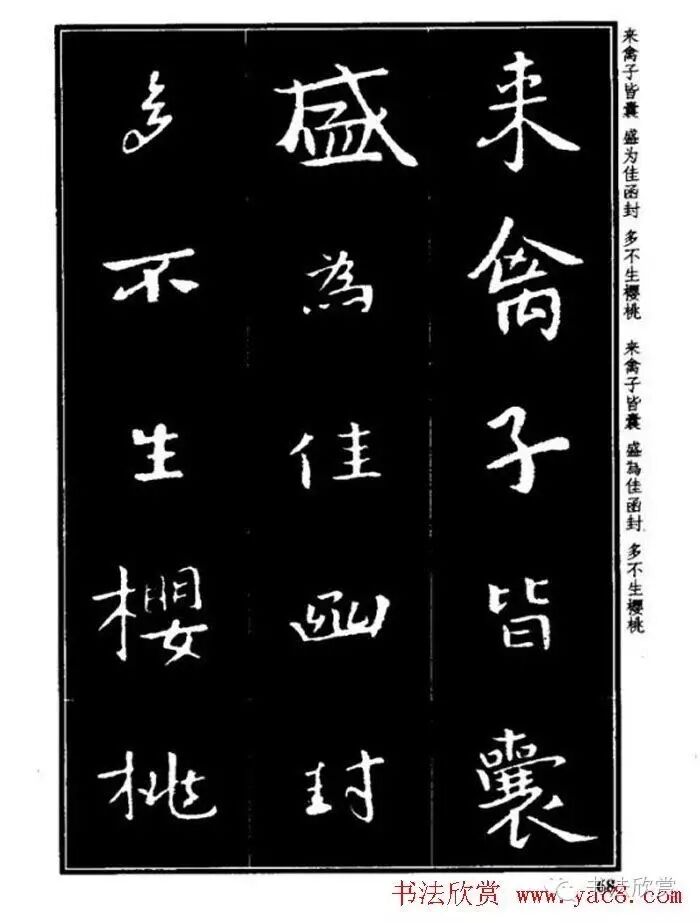 来禽子皆囊
盛為佳函封
多不生櫻桃
来禽子皆囊 盛为佳函封 多不生樱桃 来禽子皆囊 盛為佳函封 多不生櫻桃
68
书法欣赏
书法欣赏 www.yac8.com